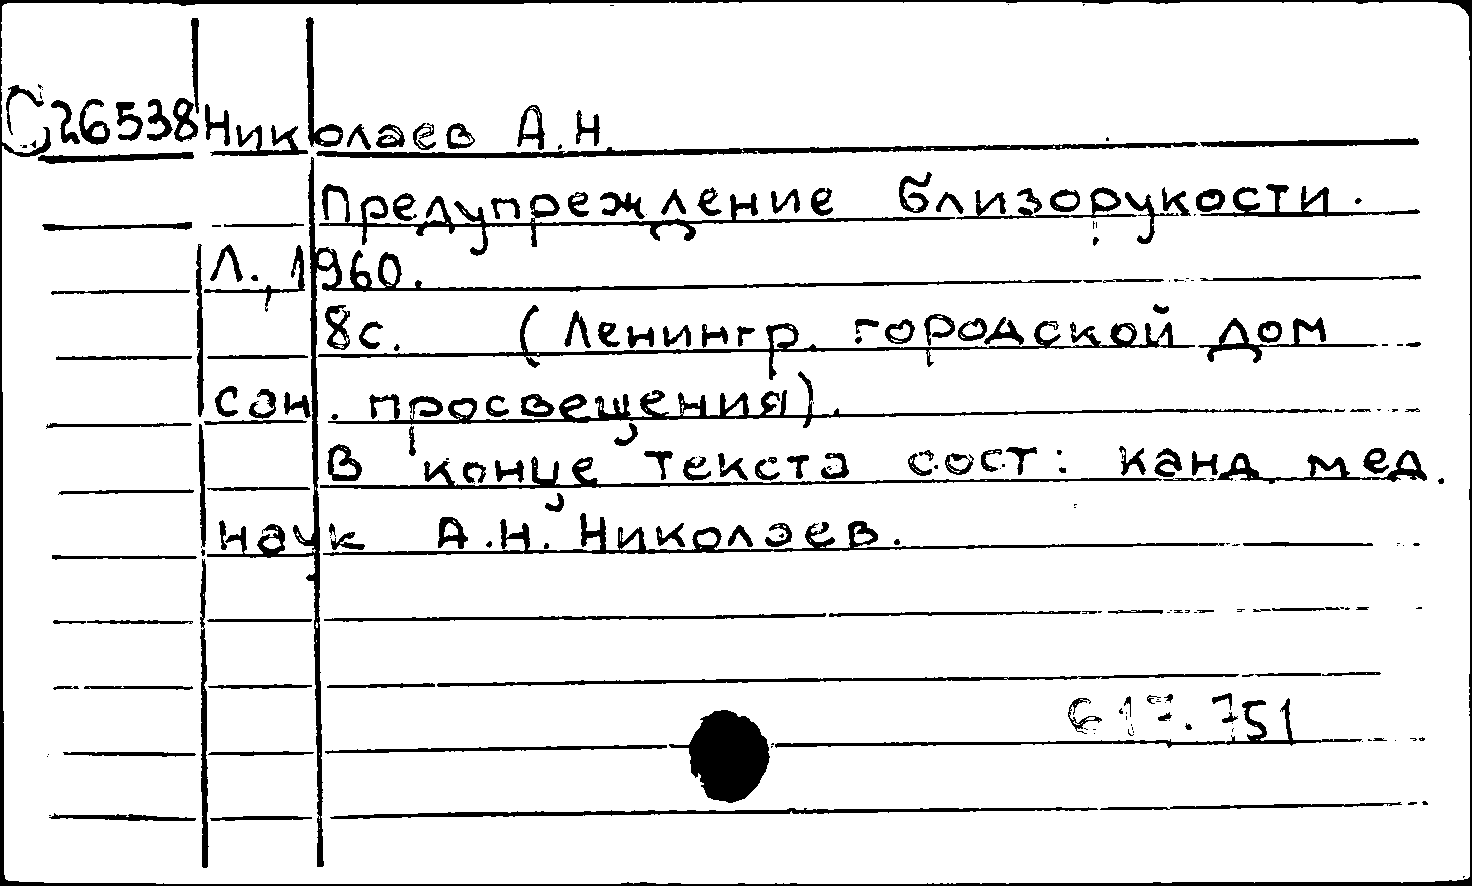 С26538 Николаев А.Н.
Предупреждение близорукости.
Л., 1960.
8с. (Ленингр. городской дом
сан. просвещения).
В конце текста сост: канд. мед.
наук А.Н. Николаев.
617.751